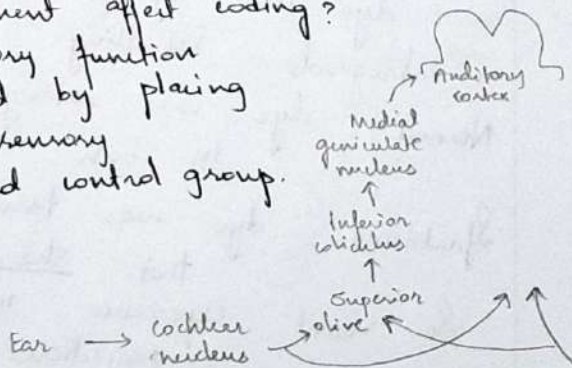 ment affect coding?
ory function
d by placing
sensory
d control group.
Auditory
cortex
Medial
geniculate
nucleus
Inferior
coliculus
Superior
olive
Ear → cochlear
nucleus